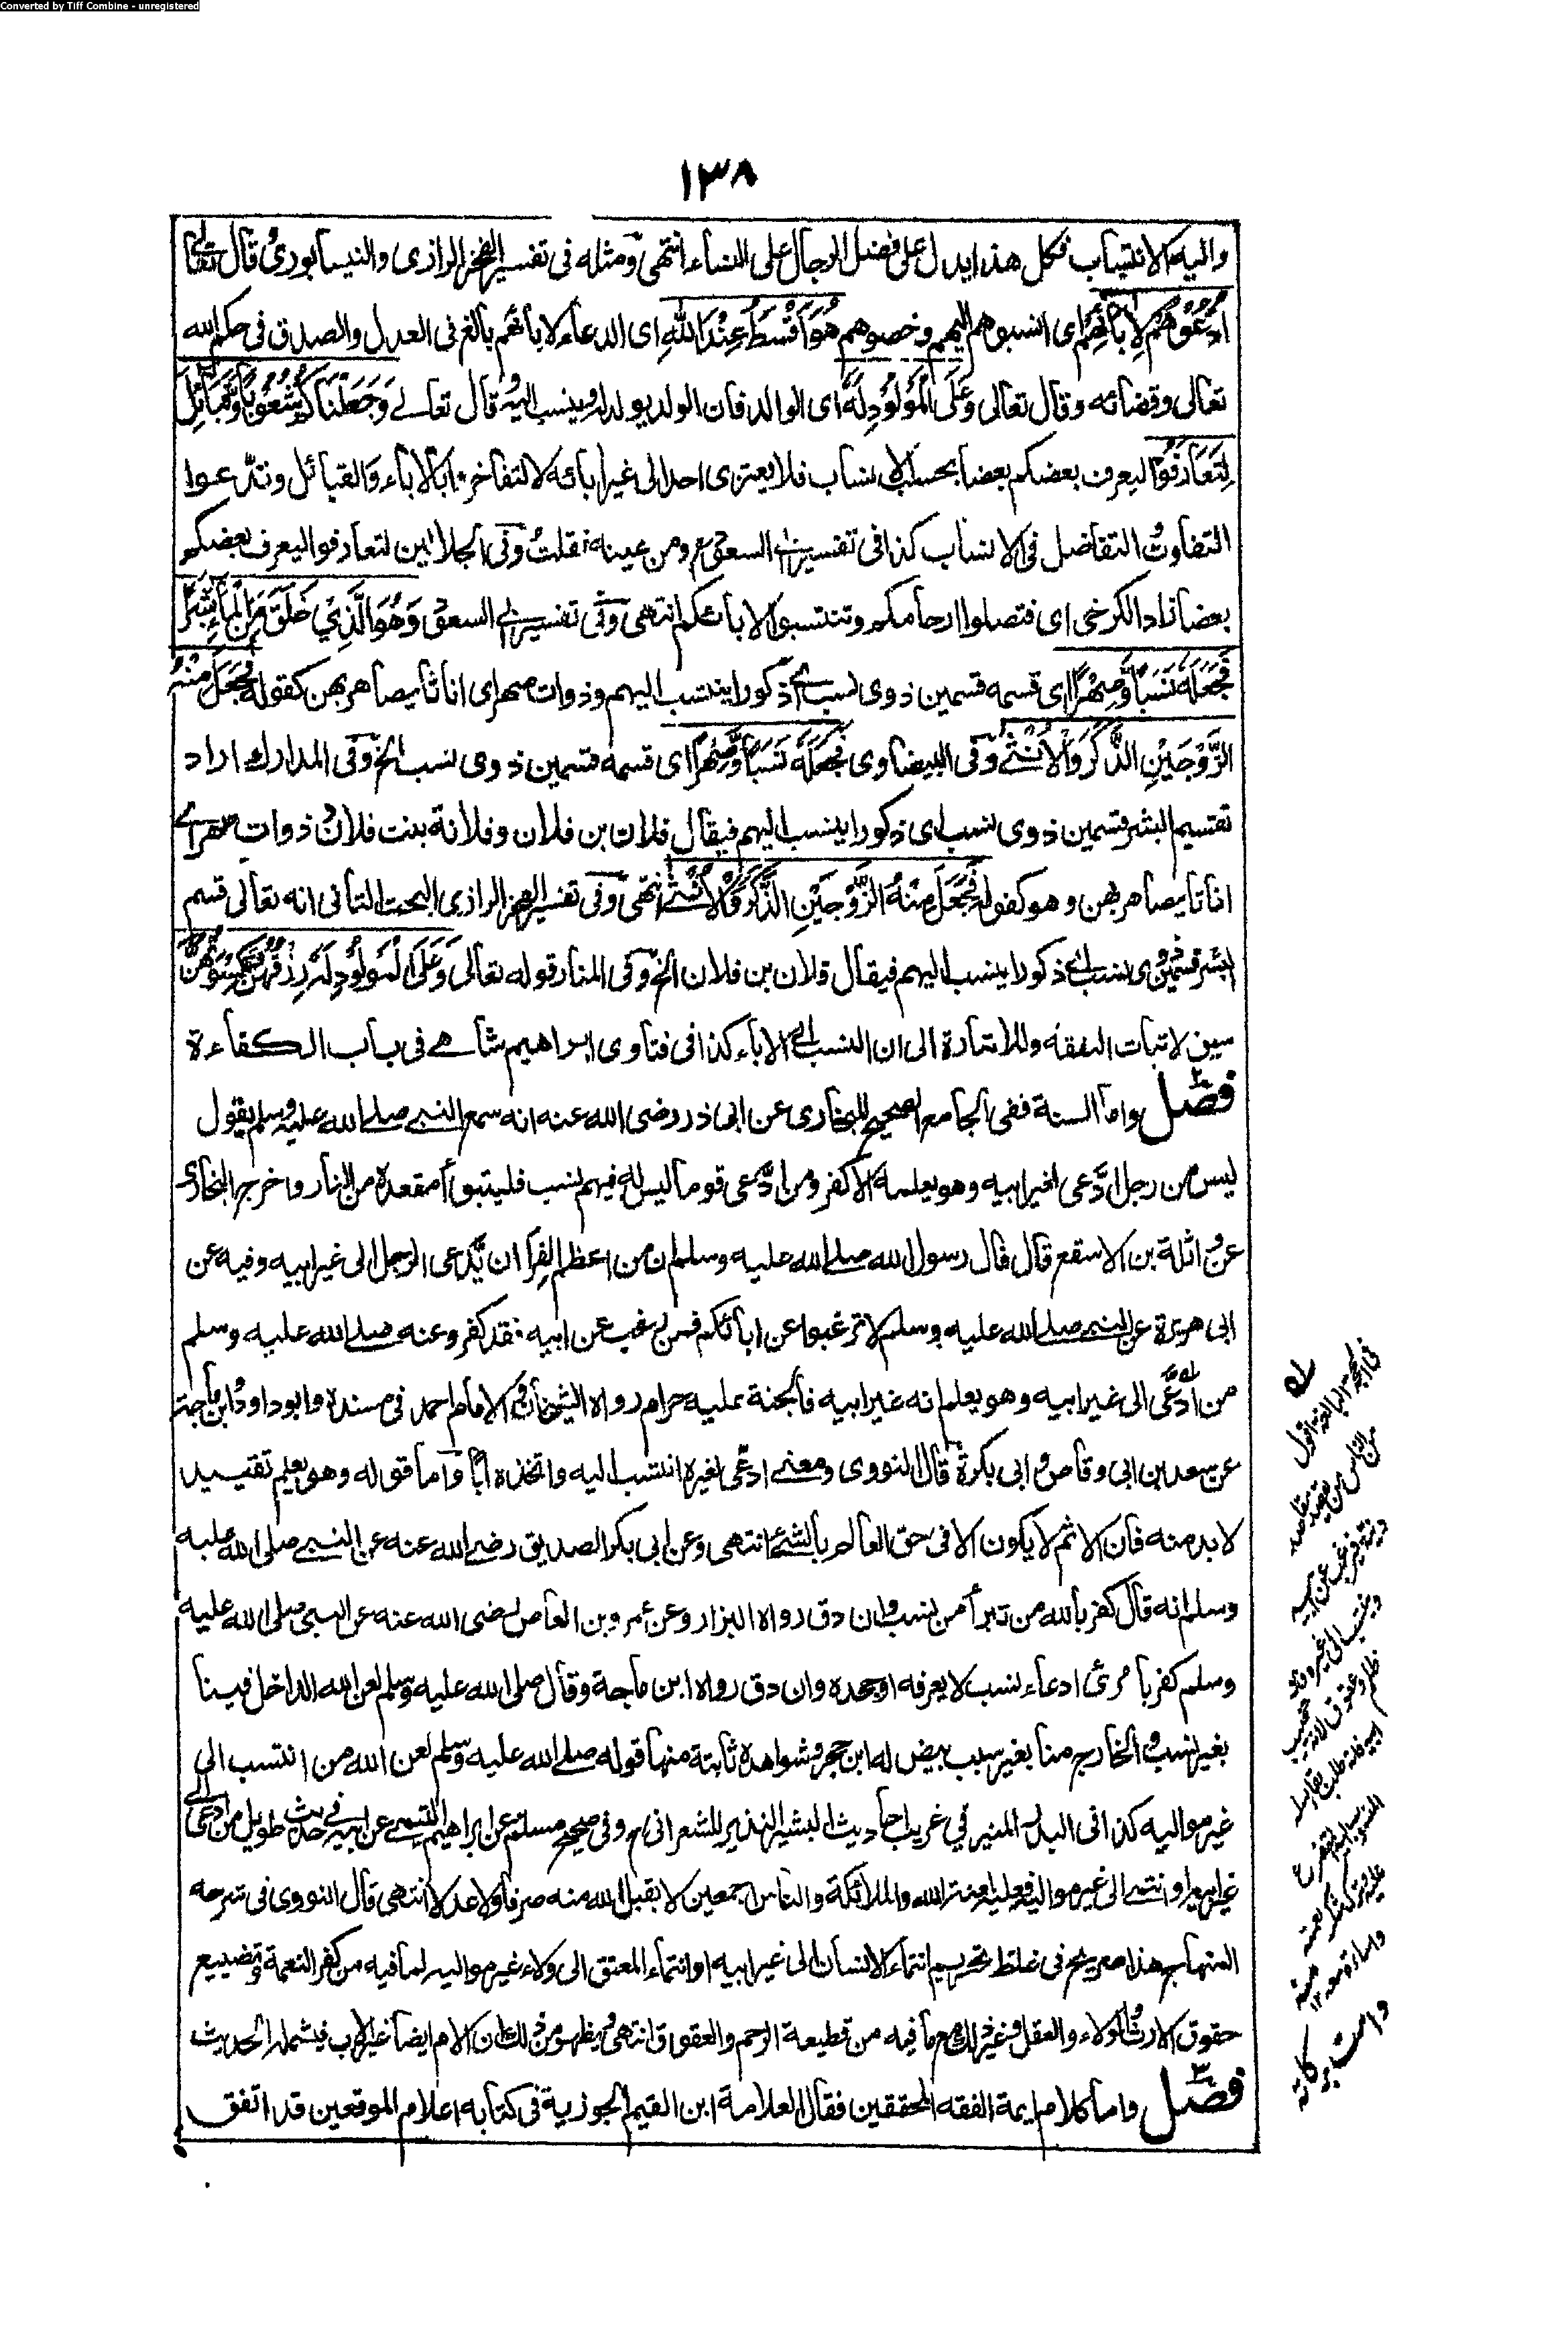 Converted by Tiff Combine - unregistered
١٣٨
واليه الانتساب فكل هذا يدل على فضل الرجال على النساء انتهى ومثله فى تفسير الفخر الرازى والنيسابورى وقال تعالى
اُدْعُوْهُمْ لِاٰبَآئِهِمْ اى انسبوهم اليهم وخصوهم هُوَ اَقْسَطُ عِنْدَ اللّٰهِ اى الدعاء لابائهم بالغ فى العدل والصدق فى حكم الله
تعالى وقضائه وقال تعالى وَعَلَى الْمَوْلُوْدِ لَهٗ اى الوالد فان الولد يولد له وينسب اليه وقال تعالے وَجَعَلْنَاكُمْ شُعُوْبًا وَّقَبَائِلَ
لِتَعَارَفُوْا ليعرف بعضكم بعضا بحسب الانساب فلا يعتزى احد الى غير ابائه لا لتفاخروا بالاباء والقبائل وتدّعوا
التفاوت والتفاضل فى الانساب كذا فى تفسير ابى السعود ومن عينه نقلت وفى الجلالين لتعارفوا ليعرف بعضكم
بعضا زاد الكرخى اى فتصلوا ارحامكم وتنتسبوا لابائكم انتهى وفى تفسير ابى السعود وَهُوَ الَّذِيْ خَلَقَ مِنَ الْمَآءِ بَشَرًا
فَجَعَلَهٗ نَسَبًا وَّصِهْرًا اى قسمه قسمين ذوى نسب اى ذكورا ينتسب اليهم وذوات صهر اى اناثا يصاهر بهن كقوله فَجَعَلَ مِنْهُ
الزَّوْجَيْنِ الذَّكَرَ وَالْاُنْثٰى وفى البيضاوى فَجَعَلَهٗ نَسَبًا وَّصِهْرًا اى قسمه قسمين ذوى نسب الخ وفى المدارك اراد
تقسيم البشر قسمين ذوى نسب اى ذكورا ينسب اليهم فيقال فلان بن فلان وفلانة بنت فلان وذوات صهر اے
اناثا يصاهر بهن وهو كقوله فَجَعَلَ مِنْهُ الزَّوْجَيْنِ الذَّكَرَ وَالْاُنْثٰى انتهى وفى تفسير الفخر الرازى البحث الثانى انه تعالى قسم
البشر قسمين ذوى نسب اے ذكورا ينسب اليهم فيقال فلان بن فلان الخ وفى المنار قوله تعالى وَعَلَى الْمَوْلُوْدِ لَهٗ رِزْقُهُنَّ وَكِسْوَتُهُنَّ
سيق لاثبات النفقة وللاشارة الى ان النسب الى الاباء كذا فى فتاوى ابراهيم شاهے فى باب الكفاءة
فصل واما السنة ففى الجامع الصحيح للبخارى عن ابى ذر رضى الله عنه انه سمع النبى صلے الله عليه وسلم يقول
ليس من رجل ادَّعى لغير ابيه وهو يعلمه الا كفر ومن ادَّعى قوما ليس له فيهم نسب فليتبوأ مقعده من النار واخرج البخارى
عن واثلة بن الاسقع قال قال رسول الله صلے الله عليه وسلم ان من اعظم الفِرَا ان يَّدعى الرجل الى غير ابيه وفيه عن
ابى هريرة عن النبى صلے الله عليه وسلم لا ترغبوا عن ابائكم فمن رغب عن ابيه فقد كفر وعنه صلے الله عليه وسلم
من ادَّعى الى غير ابيه وهو يعلم انه غير ابيه فالجنة عليه حرام رواه الشيخان والامام احمد فى مسنده وابوداود وابن ماجة
عن سعد بن ابى وقاص وابى بكرة قال النووى ومعنے ادّعى لغيره انتسب اليه واتخذه ابًا واما قوله وهو يعلم تقييد
لا بد منه فان الاثم لا يكون الا فى حق العالم بالشئ انتهى وعن ابى بكر الصديق رضے الله عنه عن النبے صلى الله عليه
وسلم انه قال كفر بالله من تبرأ من نسب وان دق رواه البزار وعن عمرو بن العاص رضى الله عنه عن النبى صلى الله عليه
وسلم كفر بامرئ ادعاء نسب لا يعرفه او جحده وان دق رواه ابن ماجة وقال صلى الله عليه وسلم لعن الله الداخل فينا
بغير نسب والخارج منا بغير سبب بيض له ابن حجر وشواهده ثابتة منها قوله صلے الله عليه وسلم لعن الله من انتسب الى
غير مواليه كذا فى البدر المنير فى غريب احاديث البشير النذير للشعرانى وفى صحيح مسلم عن ابراهيم التيمى عن ابيه فى حديث طويل من ادعى الى
غير ابيه او انتمى الى غير مواليه فعليه لعنة الله والملائكة والناس اجمعين لا يقبل الله منه صرفا ولا عدلا انتهى قال النووى فى شرحه
المنهاج هذا صريح فى غلظ تحريم انتماء الانسان الى غير ابيه او انتماء المعتق الى ولاء غير مواليه لما فيه من كفر النعمة وتضييع
حقوق الارث والولاء والعقل وغير ذلك مع ما فيه من قطيعة الرحم والعقوق انتهى ويظهر من ذلك ان الام ايضا غير الاب فيشمله الحديث
فصل واما كلام ايمة الفقه المحققين فقال العلامة ابن القيم الجوزية فى كتابه اعلام الموقعين قد اتفق
فى الحجة البالغة اقول
من الناس من يقصد مقاصد
دينية فيرغب عن ابيه
وينتسب الى غيره وهو
ظلم وعقوق لانه تخييب
ابيه